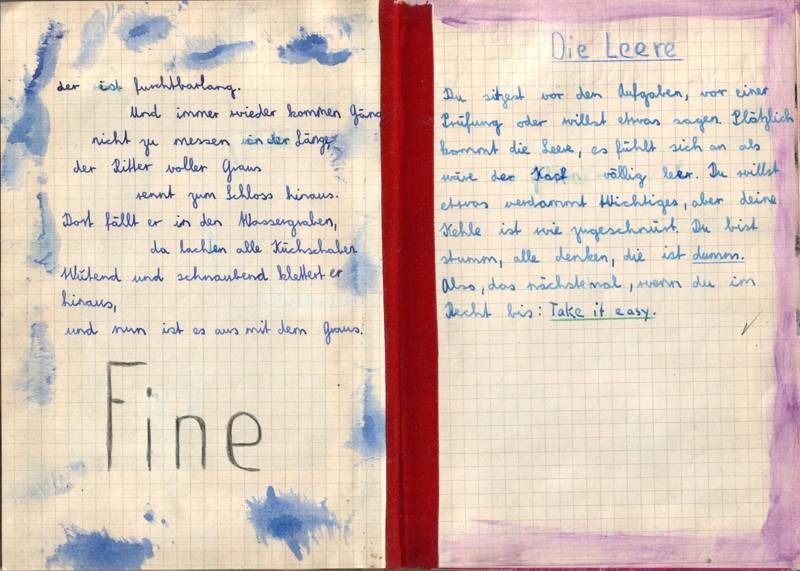 der ist furchtbarlang.
Und immer wieder kommen Gäng
nicht zu messen in der Länge,
der Ritter voller Graus
rennt zum Schloss hinaus.
Dort fällt er in den Wassergraben,
da lachen alle Küchschaben
Wütend und schnaubend klettert er
hinaus,
und nun ist es aus mit dem Graus.
Fine
Die Leere
Du sitzest vor den Aufgaben, vor einer
Prüfung oder willst etwas sagen. Plötzlich
kommt die Leere, es fühlt sich an als
wäre der Kopf völlig leer. Du willst
etwas verdammt Wichtiges, aber deine
Kehle ist wie zugeschnürt. Du bist
stumm, alle denken, die ist dumm.
Also, das nächstemal, wenn du im
Recht bis: Take it easy.